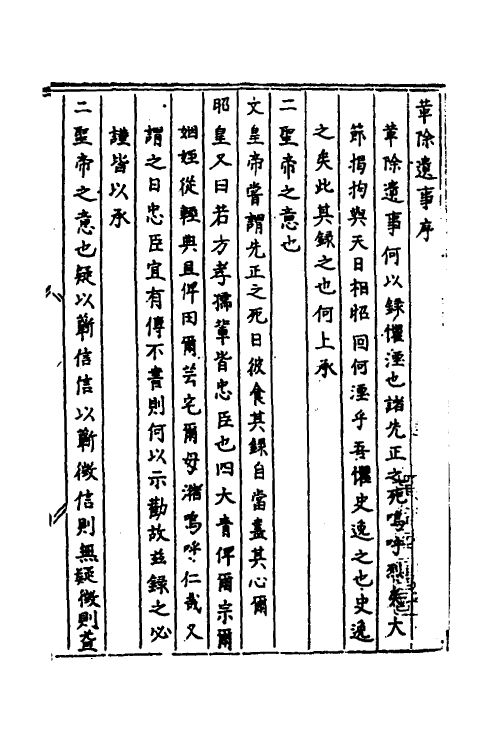 革除遺事序
革除遺事何以錄懼湮也諸先正之死嗚呼烈矣大
節揭揭與天日相昭回何湮乎吾懼史逸之也史逸
之矣此其錄之也何上承
二聖帝之意也
文皇帝嘗謂先正之死曰彼食其祿自當盡其心爾
昭皇又曰若方孝孺輩皆忠臣也四大書俾爾宗爾
姻姪從輕典且俾田爾芸宅爾毋潴嗚呼仁哉又
謂之曰忠臣宜有傳不書則何以示勸故茲錄之必
謹皆以承
二聖帝之意也疑以蘄信信以蘄徵信則無疑徵則益